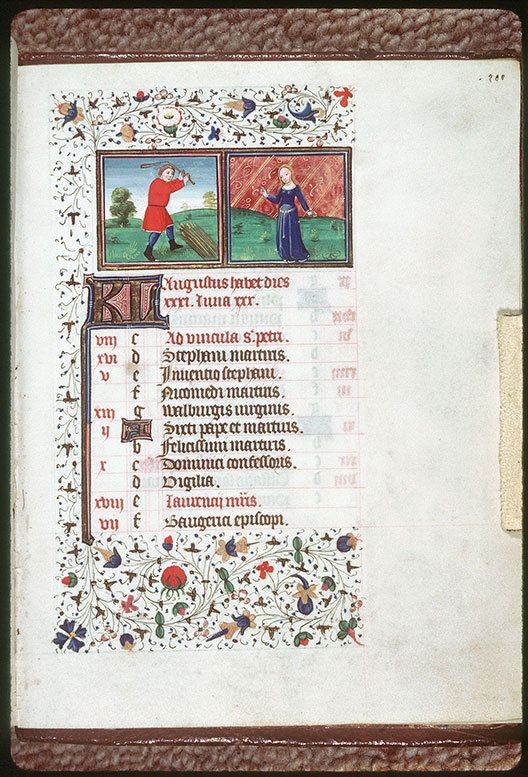 260
KL Augustus habet dies
xxxi. luna xxx.
viij c Ad vincula s. petri.
xvi d Stephani martiris.
v e Inventio stephani.
f Nicomedi martiris.
xiij g Walburgis virginis.
ij A Sixti pape et martiris.
b felicissimi martiris.
x c Dominici confessoris.
d Vigilia.
xviij e Laurencij mris.
vij f Gaugerici episcopi.